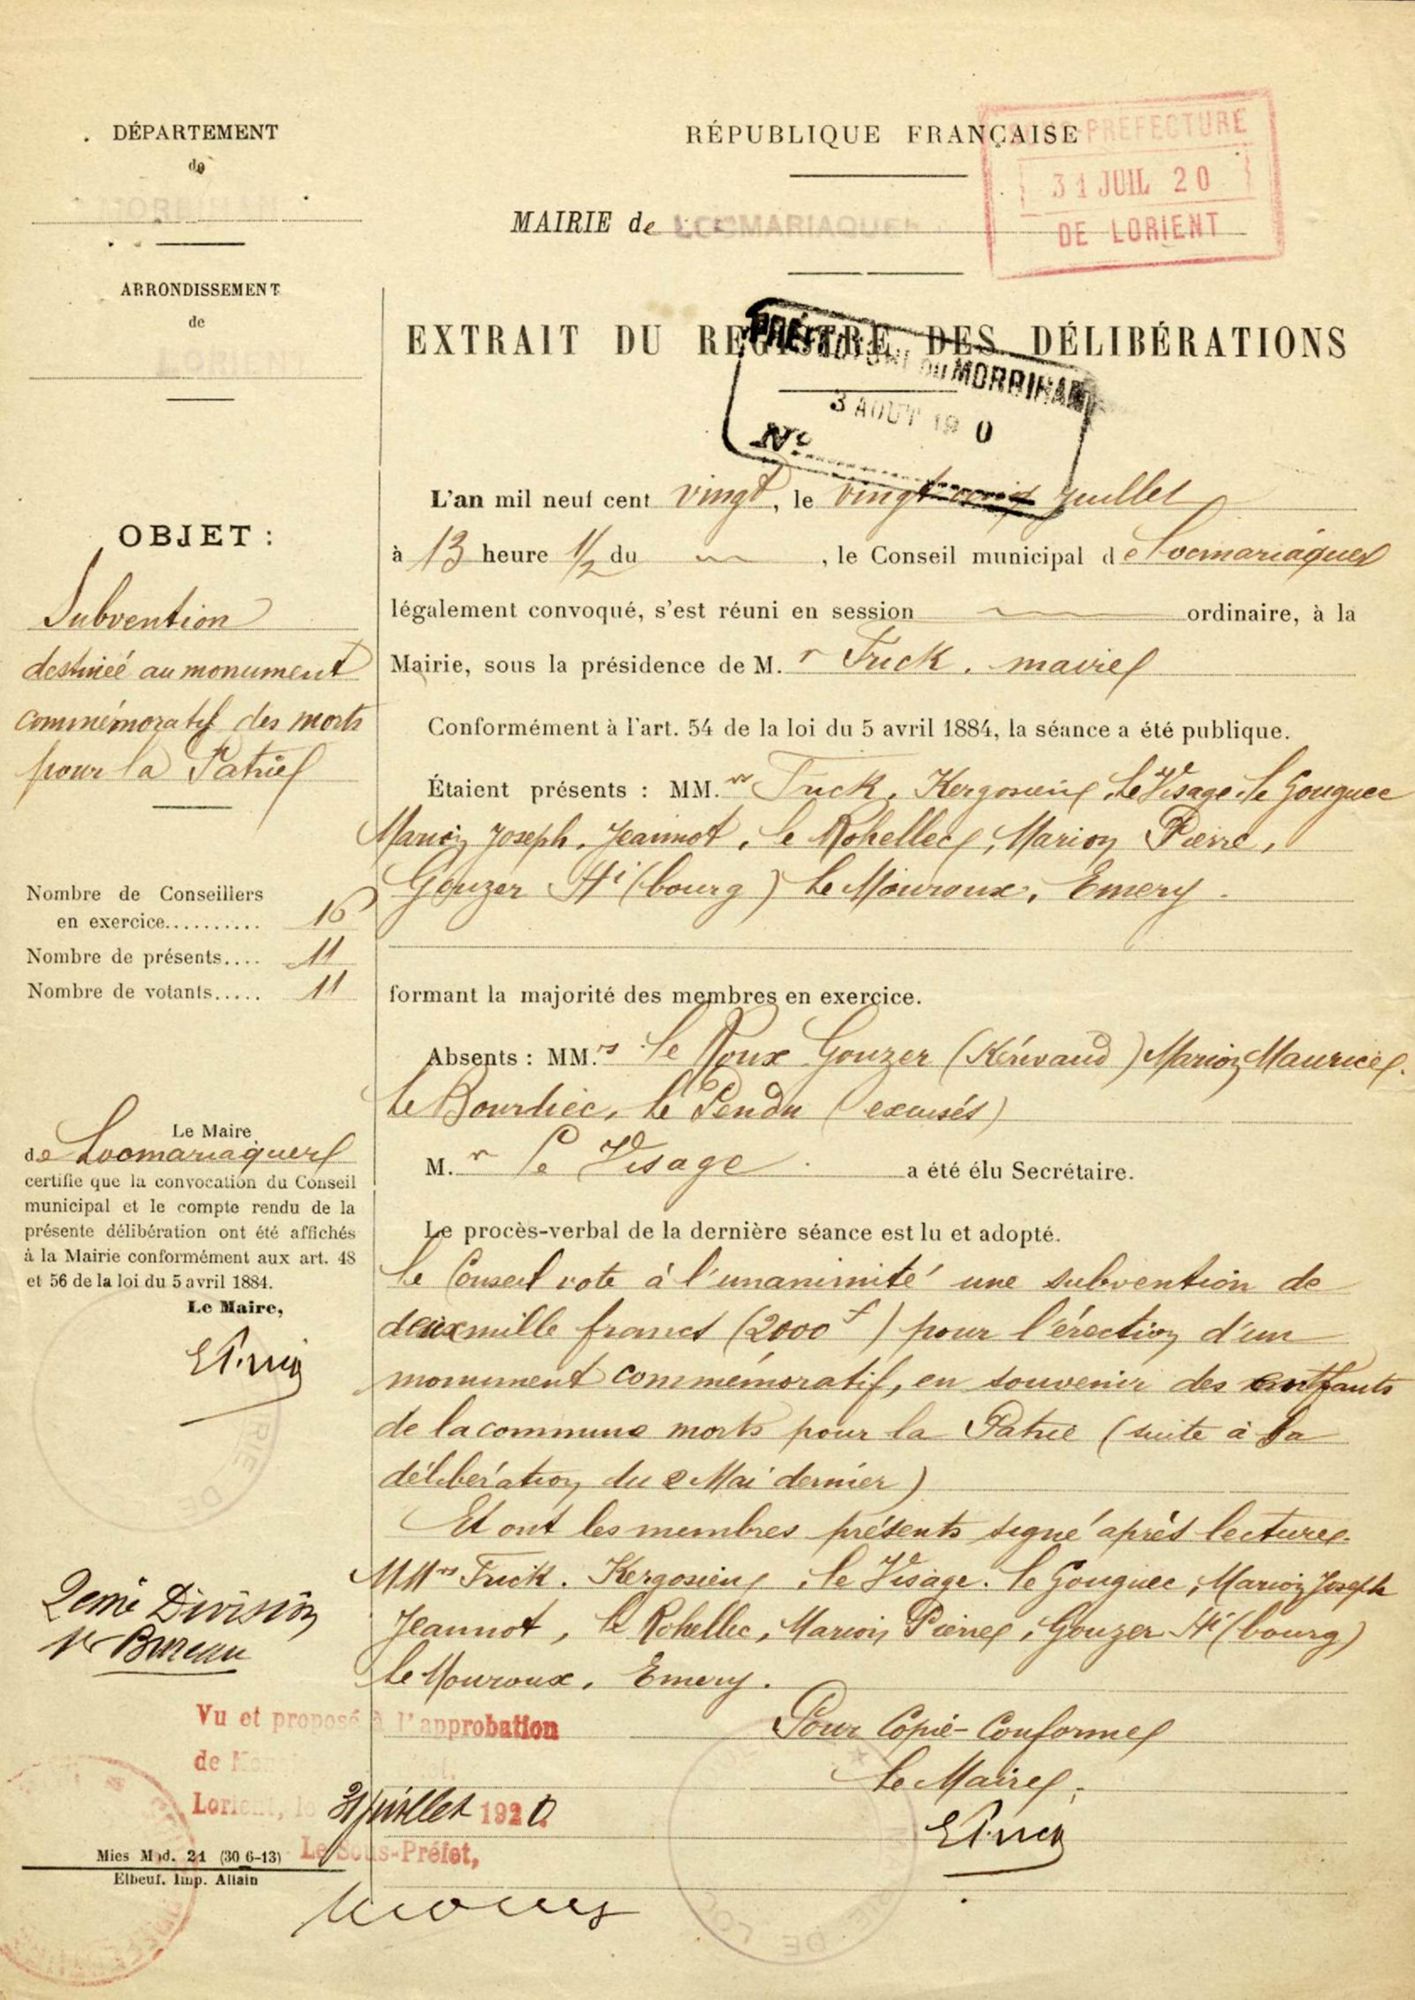 DÉPARTEMENT
de
MORBIHAN
ARRONDISSEMENT
de
LORIENT
RÉPUBLIQUE FRANÇAISE
MAIRIE de LOCMARIAQUER
SOUS-PREFECTURE
31 JUIL 20
DE LORIENT
EXTRAIT DU REGISTRE DES DÉLIBÉRATIONS
DU MORBIHAN
3 AOUT 19 0
N°
OBJET :
Subvention
destineé au monument
commémoratif des morts
pour la Patrie
Nombre de Conseillers
en exercice.......... 16
Nombre de présents.... 11
Nombre de votants..... 11
Le Maire
de Locmariaquer
certifie que la convocation du Conseil
municipal et le compte rendu de la
présente délibération ont été affichés
à la Mairie conformément aux art. 48
et 56 de la loi du 5 avril 1884.
Le Maire,
2eme Division
1er Bureau
L'an mil neuf cent vingt, le vingt juillet
à 13 heure 1/2 du , le Conseil municipal de Locmariaquer
légalement convoqué, s'est réuni en session ordinaire, à la
Mairie, sous la présidence de M.r Frick. maire
Conformément à l'art. 54 de la loi du 5 avril 1884, la séance a été publique.
Étaient présents : MM.rs Frick, Kergosien, le Visage, le Gouguec
Marion Joseph, Jeannot, le Rohellec, Marion Pierre,
Gouzer Hi (bourg) le Mouroux, Emery.
formant la majorité des membres en exercice.
Absents : MM.rs le Roux Gouzer (Kérivaud) Marion Maurice.
le Bourhiec, le Pendu (excusés)
M.r le Visage a été élu Secrétaire.
Le procès-verbal de la dernière séance est lu et adopté.
le Conseil vote à l'unanimité une subvention de
deux mille francs (2000 f) pour l'érection d'un
monument commémoratif, en souvenir des enfants
de la commune morts pour la Patrie (suite à la
délibération du 2 Mai dernier)
Et ont les membres présents signé après lecture.
MMrs Frick. Kergosien, le Visage. le Gouguec, Marion Joseph
Jeannot, le Rohellec, Marion Pierre, Gouzer Hi (bourg)
le Mouroux, Emery.
Pour Copie-Conforme
le Maire,
Vu et proposé à l'approbation
de
Lorient, le 31 juillet 1920
Le Sous-Préfet,
Mies Mod. 21 (30 6-13)
Elbeuf. Imp. Allain
MAIRIE DE LOC